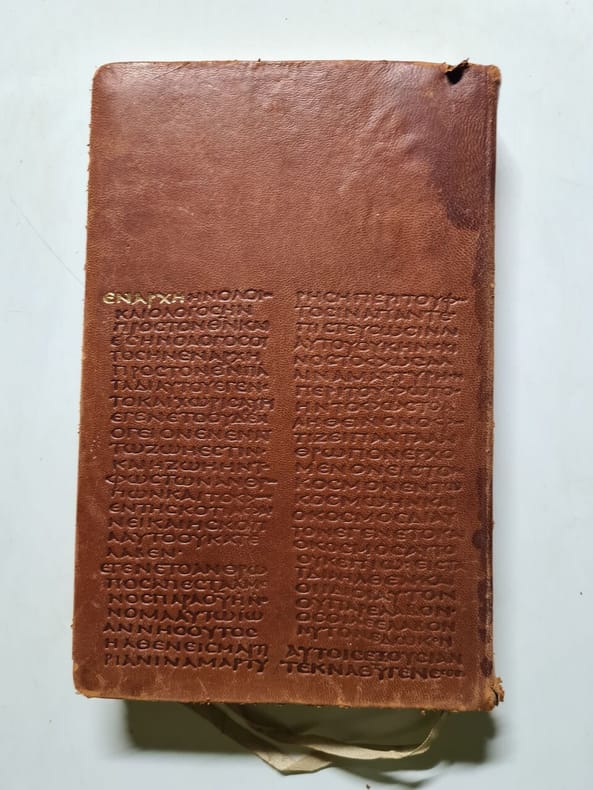 ΕΝΑΡΧΗΗΝΟΛΟΓ
ΚΑΙΟΛΟΓΟCΗΝ
ΠΡΟCΤΟΝΘΝΚΑΙ
ΘCΗΝΟΛΟΓΟCΟΥ
ΤΟCΗΝΕΝΑΡΧΗ
ΠΡΟCΤΟΝΘΝΠΑ
ΤΑΔΙΑΥΤΟΥΕΓΕΝ
ΤΟΚΑΙΧΩΡΙCΑΥΤ
ΕΓΕΝΕΤΟΟΥΔΕΝ
ΟΓΕΓΟΝΕΝΕΝΑΥ
ΤΩΖΩΗΕCΤΙΝ
ΚΑΙΗΖΩΗΗΝΤ
ΦΩCΤΩΝΑΝΘΡ
ΠΩΝΚΑΙΤΟΦΩC
ΕΝΤΗCΚΟΤ
ΝΕΙΚΑΙΗCΚΟΤΙ
ΑΑΥΤΟΟΥΚΑΤΕ
ΛΑΒΕΝ
ΕΓΕΝΕΤΟΑΝΘΡΩ
ΠΟCΑΠΕCΤΑΛΜΕ
ΝΟCΠΑΡΑΘΥΗΝ
ΝΟΜΑΑΥΤΩΙΩ
ΑΝΝΗCΟΥΤΟC
ΗΛΘΕΝΕΙCΜΑΡΤΥ
ΡΙΑΝΙΝΑΜΑΡΤΥ
ΡΗCΗΠΕΡΙΤΟΥΦ
ΤΟCΙΝΑΠΑΝΤΕ
ΠΙCΤΕΥCΩCΙΝΔΙ
ΑΥΤΟΥΟΥΚΗΝ
ΝΟCΤΟΦΩCΑΛΛ
ΙΝΑΜΑΡΤΥΡΗCΗ
ΠΕΡΙΤΟΥΦΩΤΟ
ΗΝΤΟΦΩCΤΟΑ
ΛΗΘΕΙΝΟΝΟΦΩ
ΤΙΖΕΙΠΑΝΤΑΑΝ
ΘΡΩΠΟΝΕΡΧΟ
ΜΕΝΟΝΕΙCΤΟΝ
ΚΟCΜΟΝΕΝΤΩ
ΚΟCΜΩΗΝΚΑΙ
ΟΚΟCΜΟCΔΙΑΥΤ
ΕΓΕΝΕΤΟΚΑΙ
ΟΚΟCΜΟCΑΥΤΟ
ΟΥΚΕΓΝΩΕΙCΤ
ΤΑΙΔΙΑΗΛΘΕΝΚΑΙ
ΟΙΙΔΙΟΙΑΥΤΟΝ
ΟΥΠΑΡΕΛΑΒΟΝ
ΟCΟΙΔΕΕΛΑΒΟΝ
ΑΥΤΟΝΕΔΩΚΕΝ
ΑΥΤΟΙCΕΞΟΥCΙΑΝ
ΤΕΚΝΑΘΥΓΕΝΕ